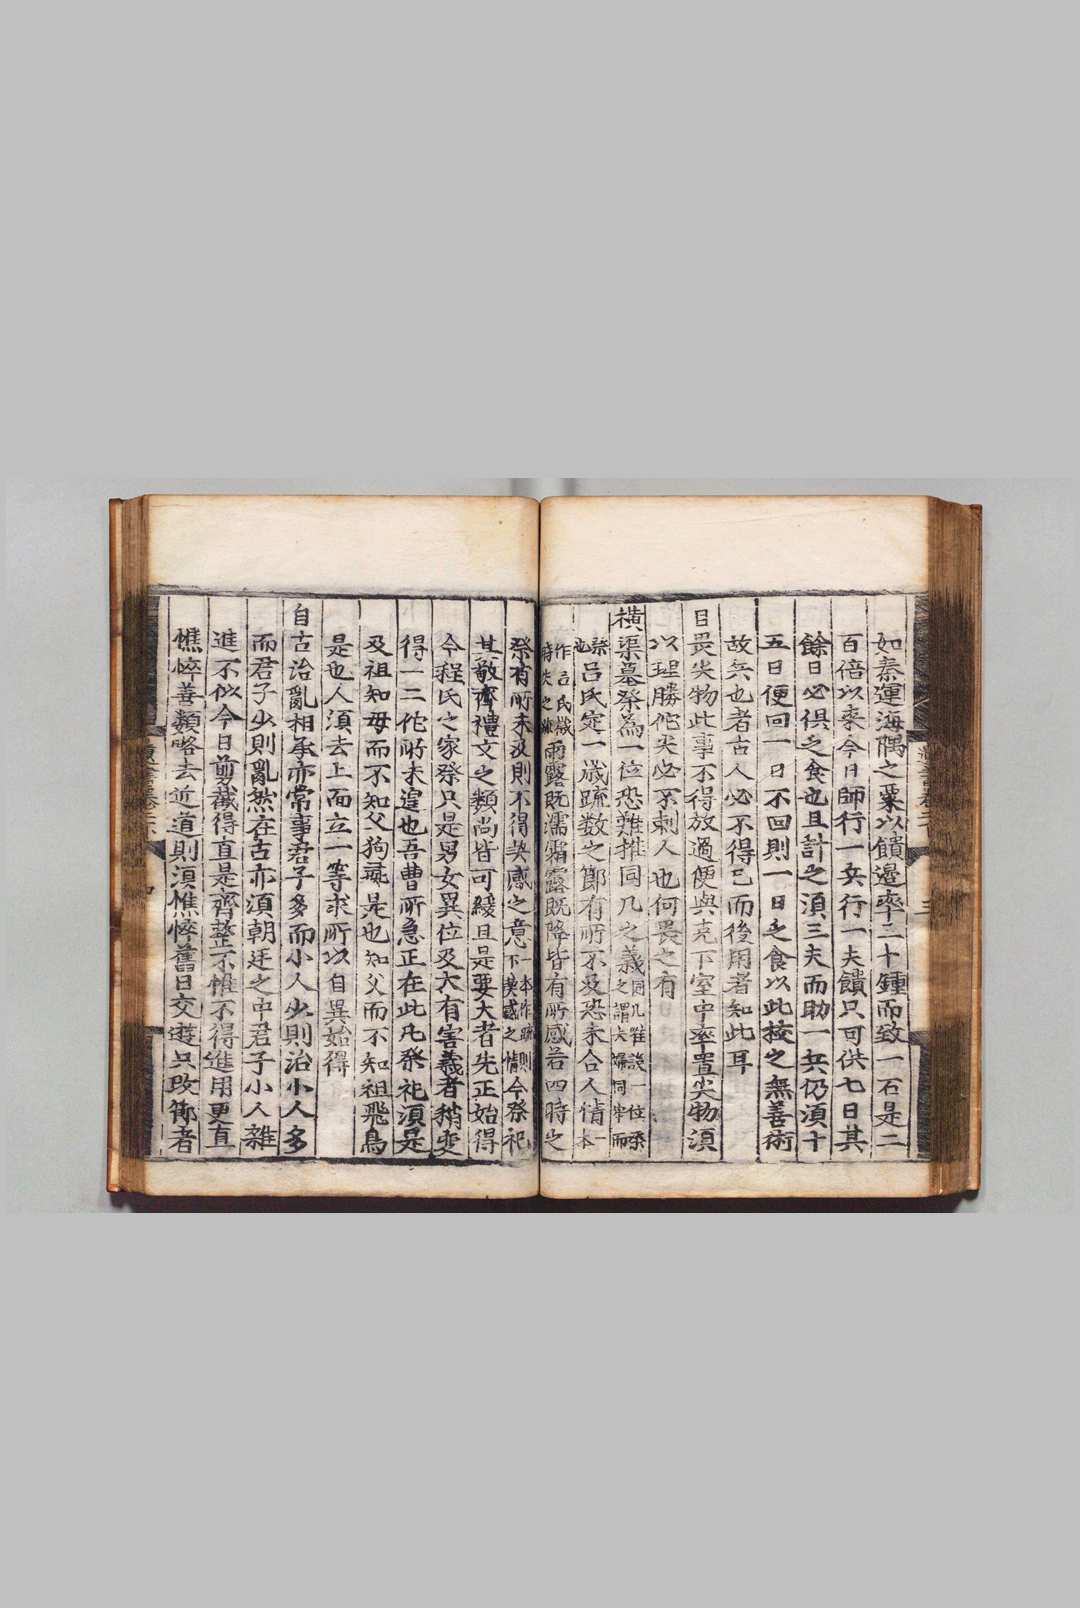 如秦運海隅之粟以饋邊率三十鍾而致一石是二
百倍以来今日師行一兵行一夫饋只可供七日其
餘日必俱乏食也且計之須三夫而助一兵仍須十
五日便回一日不回則一日乏食以此校之無善術
故兵也者古人必不得已而後用者知此耳
目畏尖物此事不得放過便與克下室中率置尖物須
以理勝佗尖必不刺人也何畏之有
橫渠墓祭爲一位恐難推同几之義同几唯設一位祭之謂夫婦同牢而
祭也吕氏定一歲疏数之節有所不及恐未合人情一本
作吕氏歲時失之疎雨露既濡霜露既降皆有所感若四時之
祭有所未及則不得契感之意一本作疏則不契感之情今祭祀
其敬齊禮文之類尚皆可緩且是要大者先正始得
今程氏之家祭只是男女異位及大有害義者稍變
得一二佗所未遑也吾曹所急正在此凡祭祀須是
及祖知母而不知父狗彘是也知父而不知祖飛鳥
是也人須去上面立一等求所以自異始得
自古治亂相承亦常事君子多而小人少則治小人多
而君子少則亂然在古亦須朝廷之中君子小人雜
進不似今日剪截得直是齊整不惟不得進用更直
憔悴善類略去近道則須憔悴舊日交遊只改節者